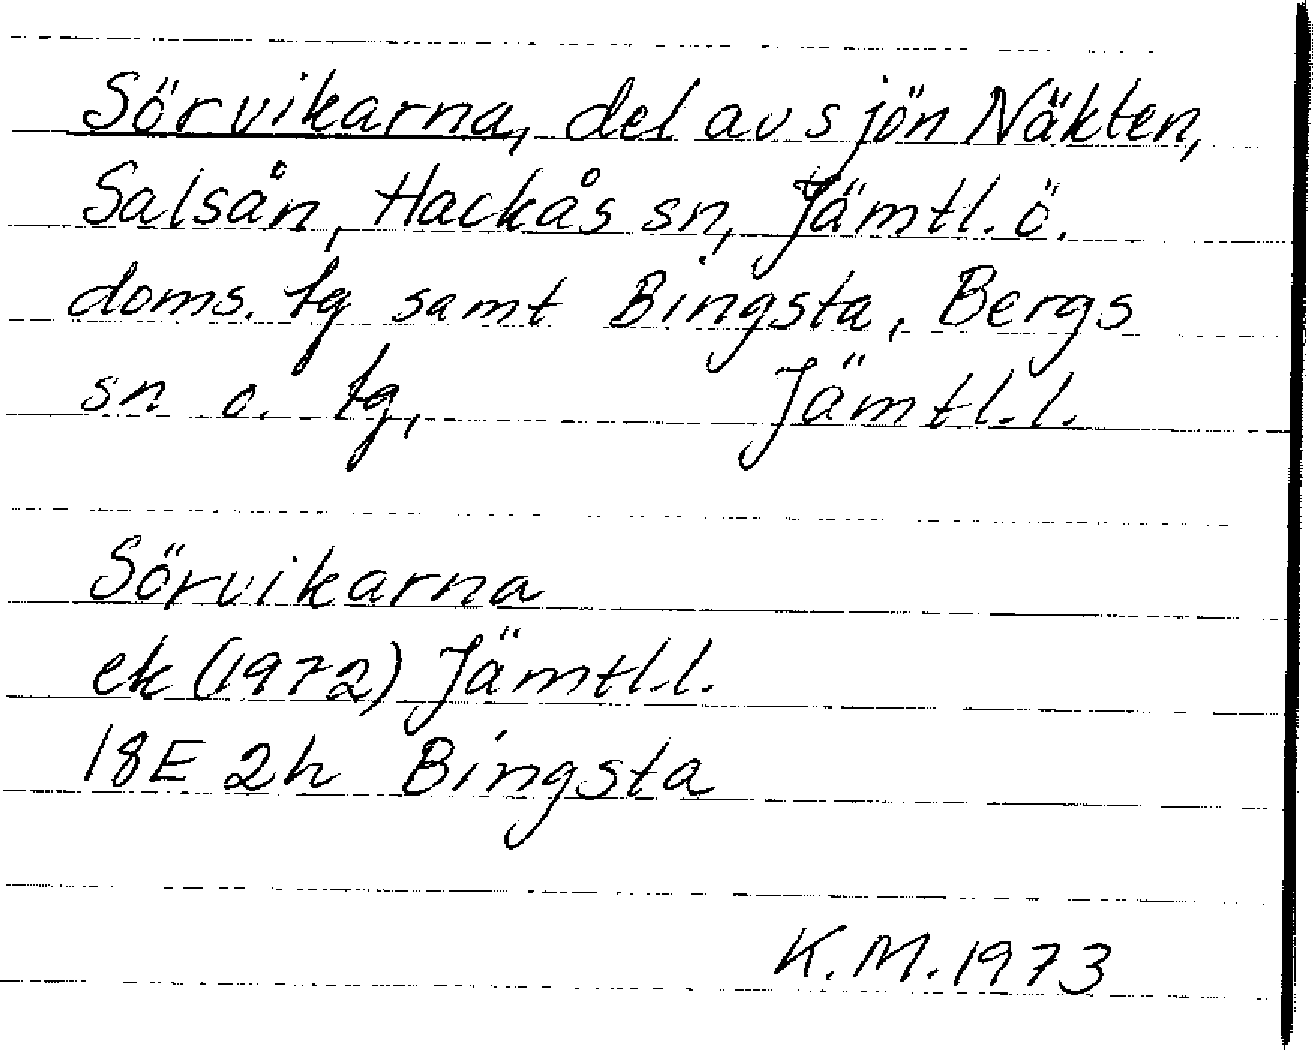 Sörvikarna, del av sjön Näkten,
Salsån, Hackås sn, Jämtl. ö.
doms. tg samt Bingsta, Bergs
sn o. tg, Jämtl. l.
Sörvikarna
ek (1972) Jämtl. l.
18E 2h Bingsta
K. M. 1973